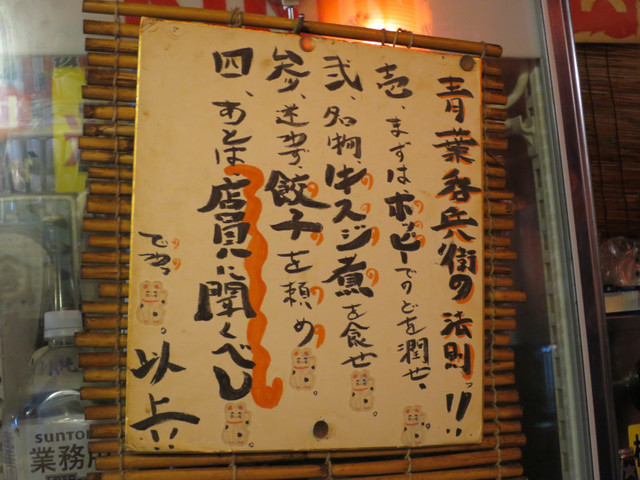 青葉呑兵衛の法則ッ!!
壱、まずはホッピーでのどを潤せ、
弐、名物、牛スジ煮を食せ
参、迷わず餃子を頼め
四、あとは、店員に聞くべし
でや。
以上!!
SUNTO
業務